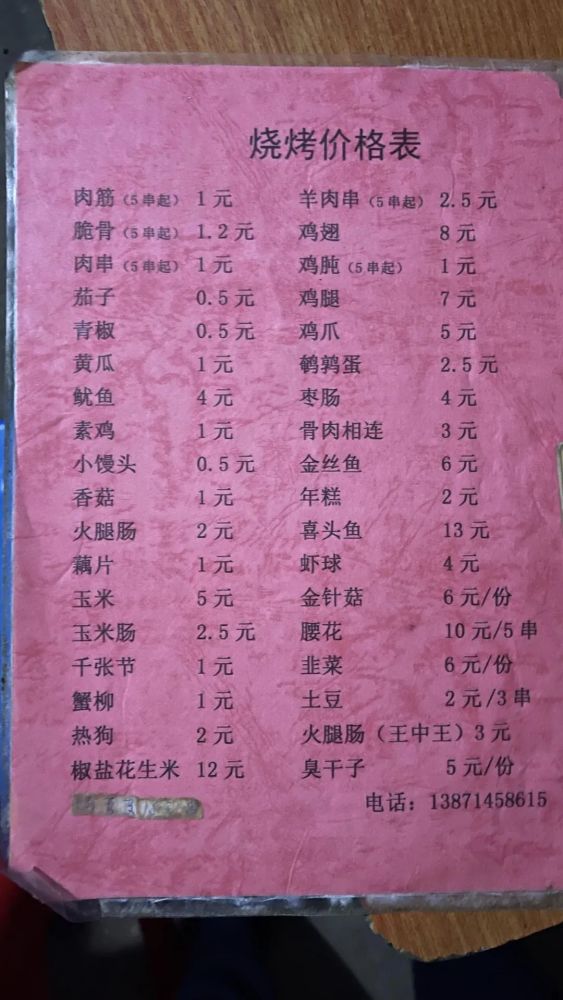 烧烤价格表
肉筋（5串起） 1元 羊肉串（5串起） 2.5元
脆骨（5串起） 1.2元 鸡翅 8元
肉串（5串起） 1元 鸡肫（5串起） 1元
茄子 0.5元 鸡腿 7元
青椒 0.5元 鸡爪 5元
黄瓜 1元 鹌鹑蛋 2.5元
鱿鱼 4元 枣肠 4元
素鸡 1元 骨肉相连 3元
小馒头 0.5元 金丝鱼 6元
香菇 1元 年糕 2元
火腿肠 2元 喜头鱼 13元
藕片 1元 虾球 4元
玉米 5元 金针菇 6元/份
玉米肠 2.5元 腰花 10元/5串
千张节 1元 韭菜 6元/份
蟹柳 1元 土豆 2元/3串
热狗 2元 火腿肠（王中王）3元
椒盐花生米 12元 臭干子 5元/份
电话：13871458615